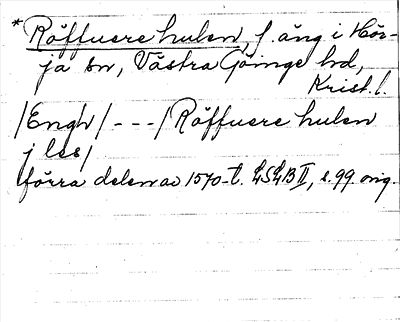 * Röffuere hulen, f. äng i Hör-
ja sn, Västra Göinge hd,
Krist. l.
/Engh/ - - - / Röffuere hulen
j les/
förra delen av 1570-t. LSLB II, s. 99 orig.